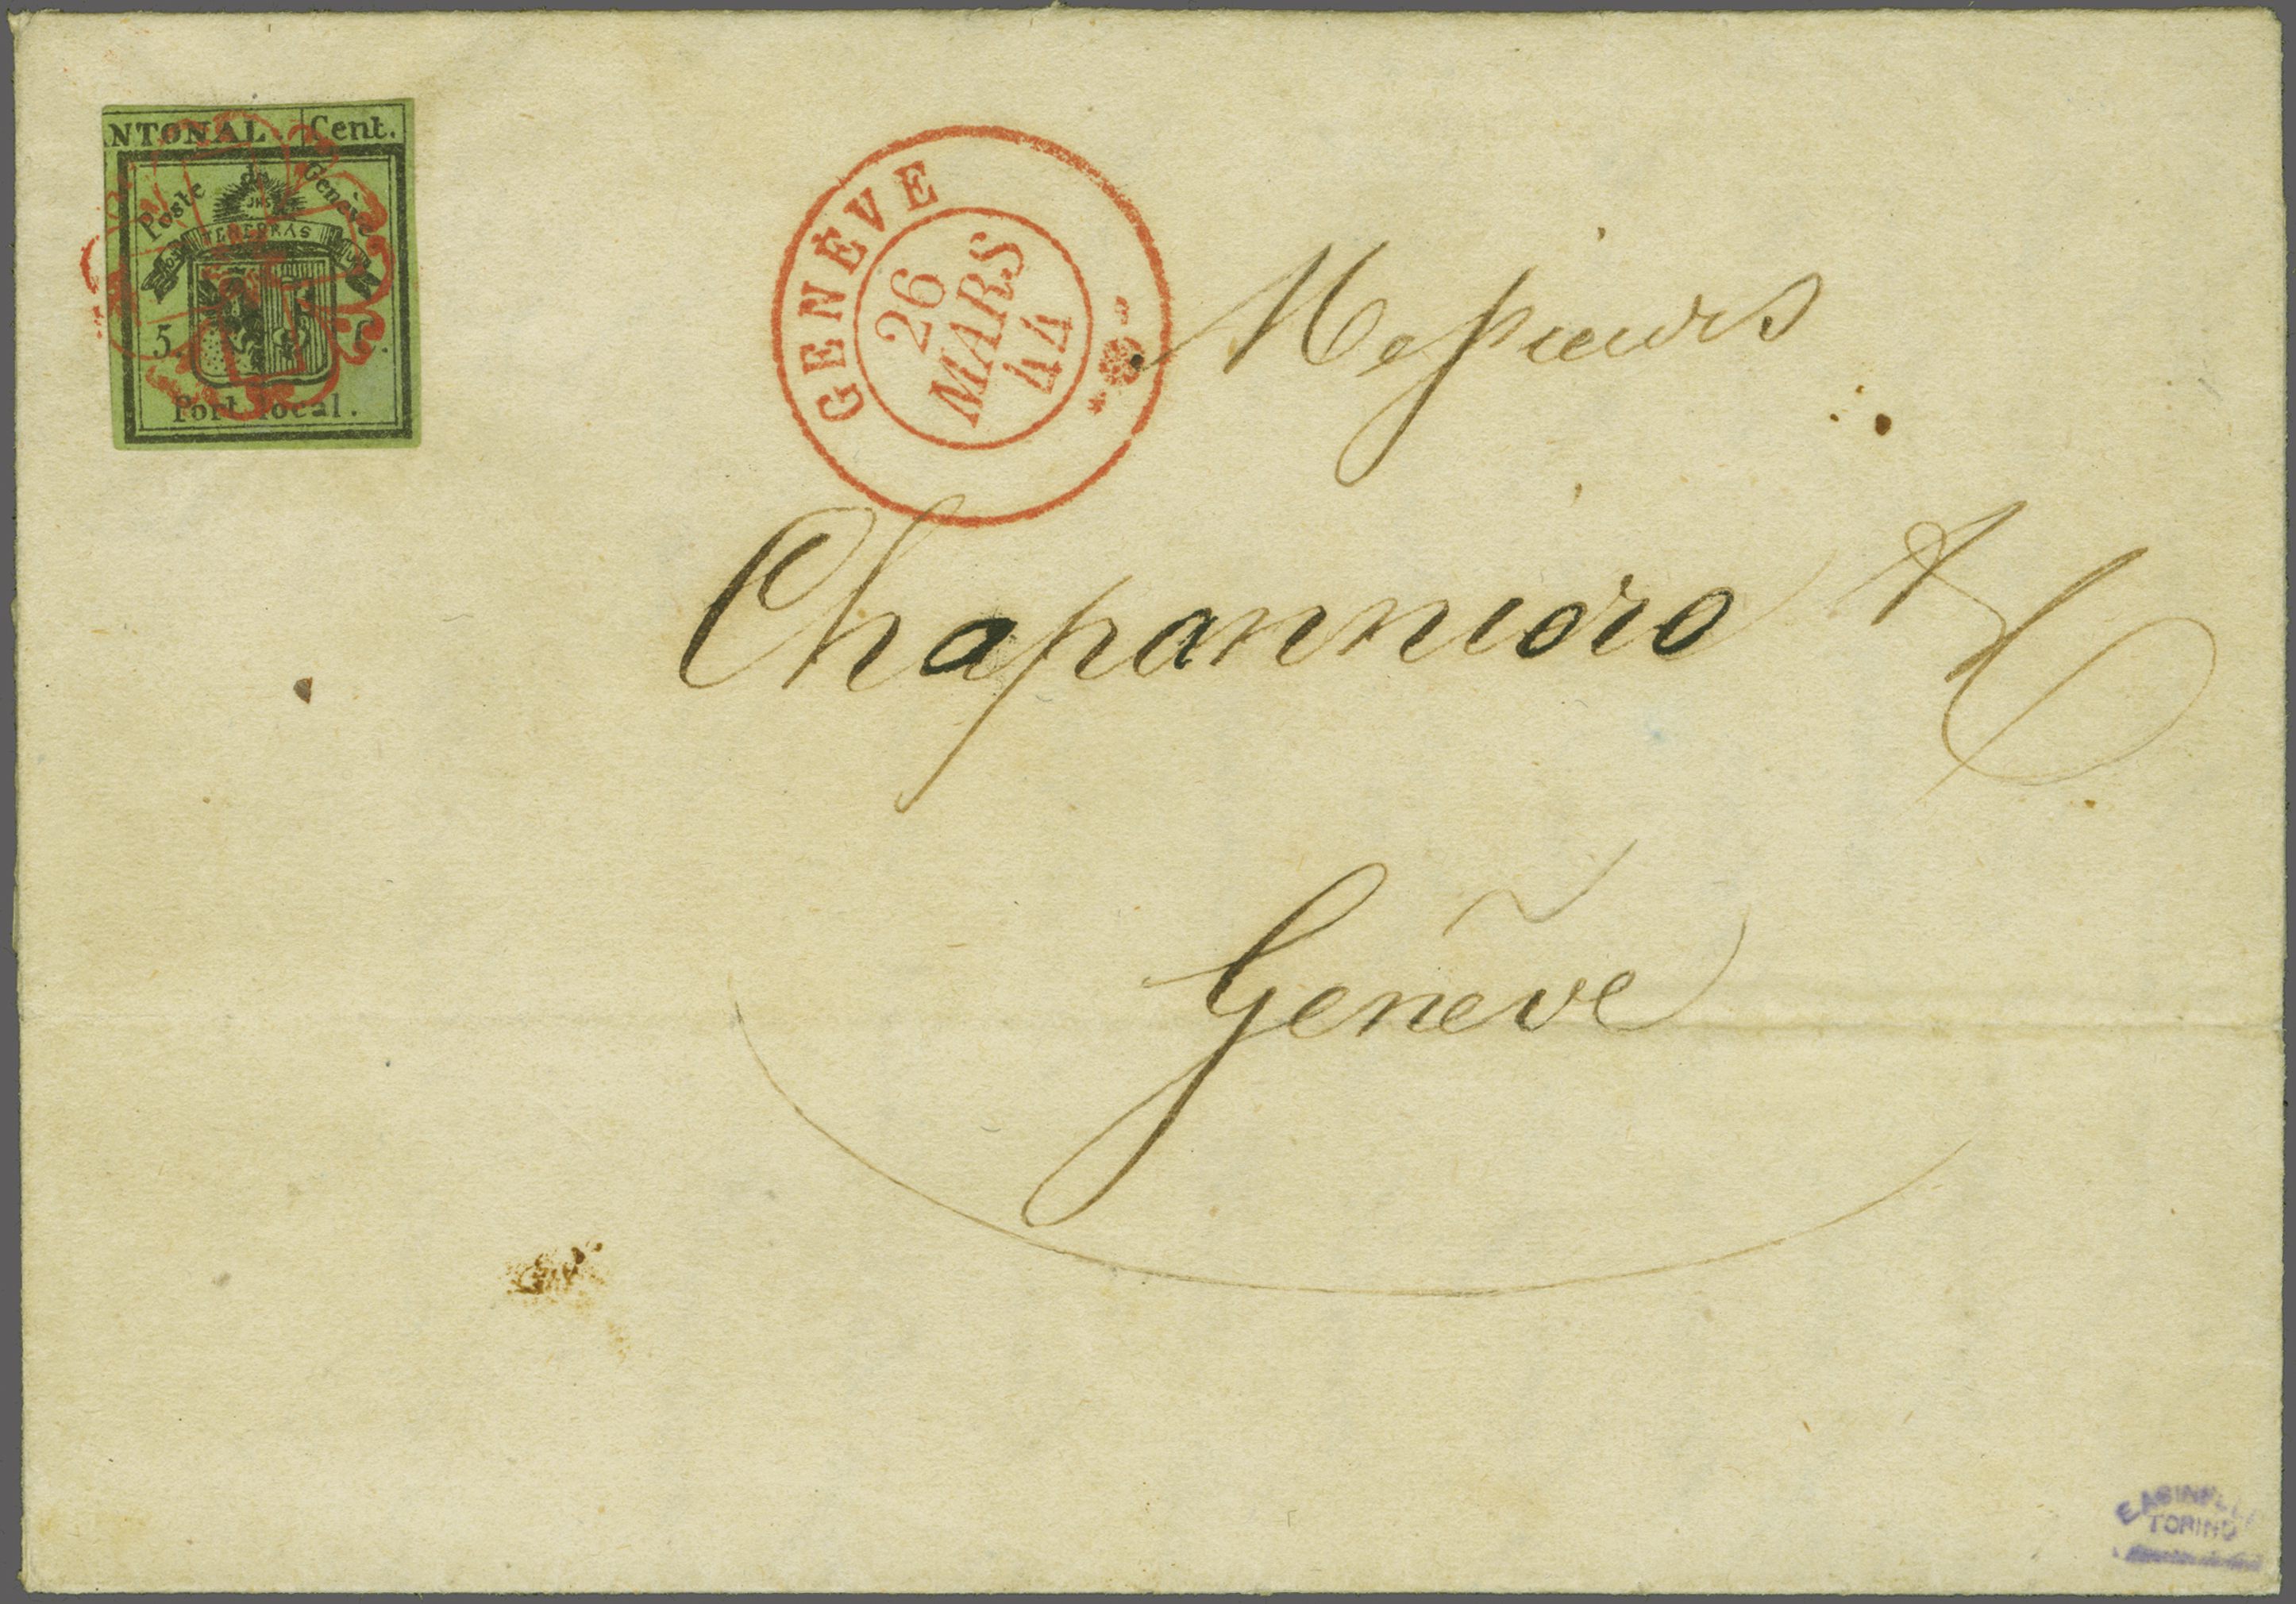 NTONAL Cent.
Poste de Genève
JHS
POST TENEBRAS LUX
5 C.
Port local.
GENÈVE
26
MARS
44
Messieurs
Chaponnière & C
Genève
TORINO